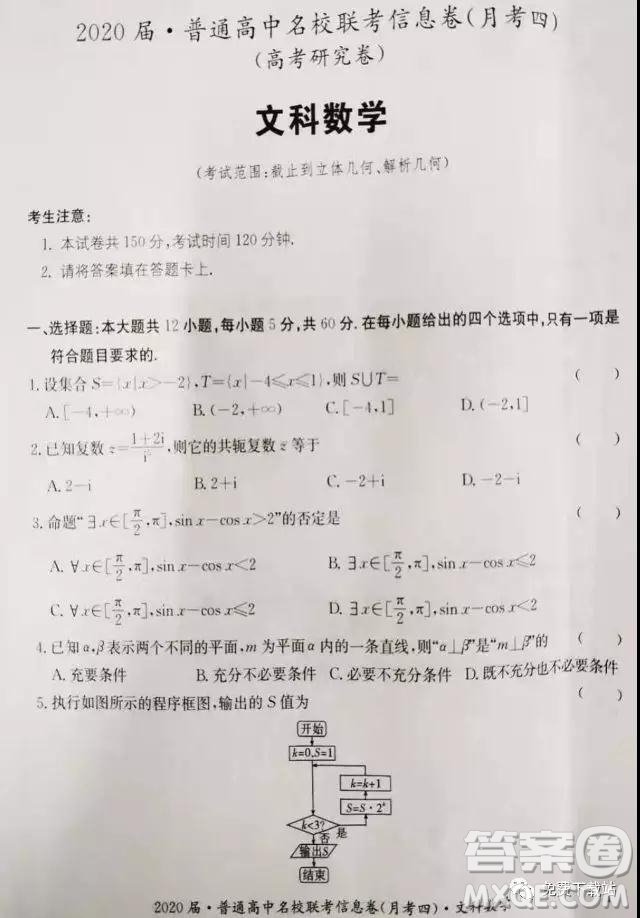 2020 届·普通高中名校联考信息卷(月考四)
(高考研究卷)
文科数学
(考试范围:截止到立体几何、解析几何)
考生注意:
1. 本试卷共 150 分,考试时间 120 分钟.
2. 请将答案填在答题卡上.
一、选择题:本大题共 12 小题,每小题 5 分,共 60 分. 在每小题给出的四个选项中,只有一项是
符合题目要求的.
1. 设集合 S={x|x>-2},T={x|-4≤x≤1},则 S∪T= ( )
A. [-4,+∞) B. (-2,+∞) C. [-4,1] D. (-2,1]
2. 已知复数 z=(1+2i)/i,则它的共轭复数 z̄ 等于 ( )
A. 2-i B. 2+i C. -2+i D. -2-i
3. 命题“∃x∈[π/2,π],sin x-cos x>2”的否定是 ( )
A. ∀x∈[π/2,π],sin x-cos x<2 B. ∃x∈[π/2,π],sin x-cos x≤2
C. ∀x∈[π/2,π],sin x-cos x≤2 D. ∃x∈[π/2,π],sin x-cos x<2
4. 已知 α,β 表示两个不同的平面,m 为平面 α 内的一条直线,则“α⊥β”是“m⊥β”的 ( )
A. 充要条件 B. 充分不必要条件 C. 必要不充分条件 D. 既不充分也不必要条件
5. 执行如图所示的程序框图,输出的 S 值为 ( )
开始
k=0,S=1
k=k+1
S=S·2^k
k<3?
是
否
输出S
结束
2020 届·普通高中名校联考信息卷(月考四)·文科数学
答案圈
MXQE.COM
免费下载站